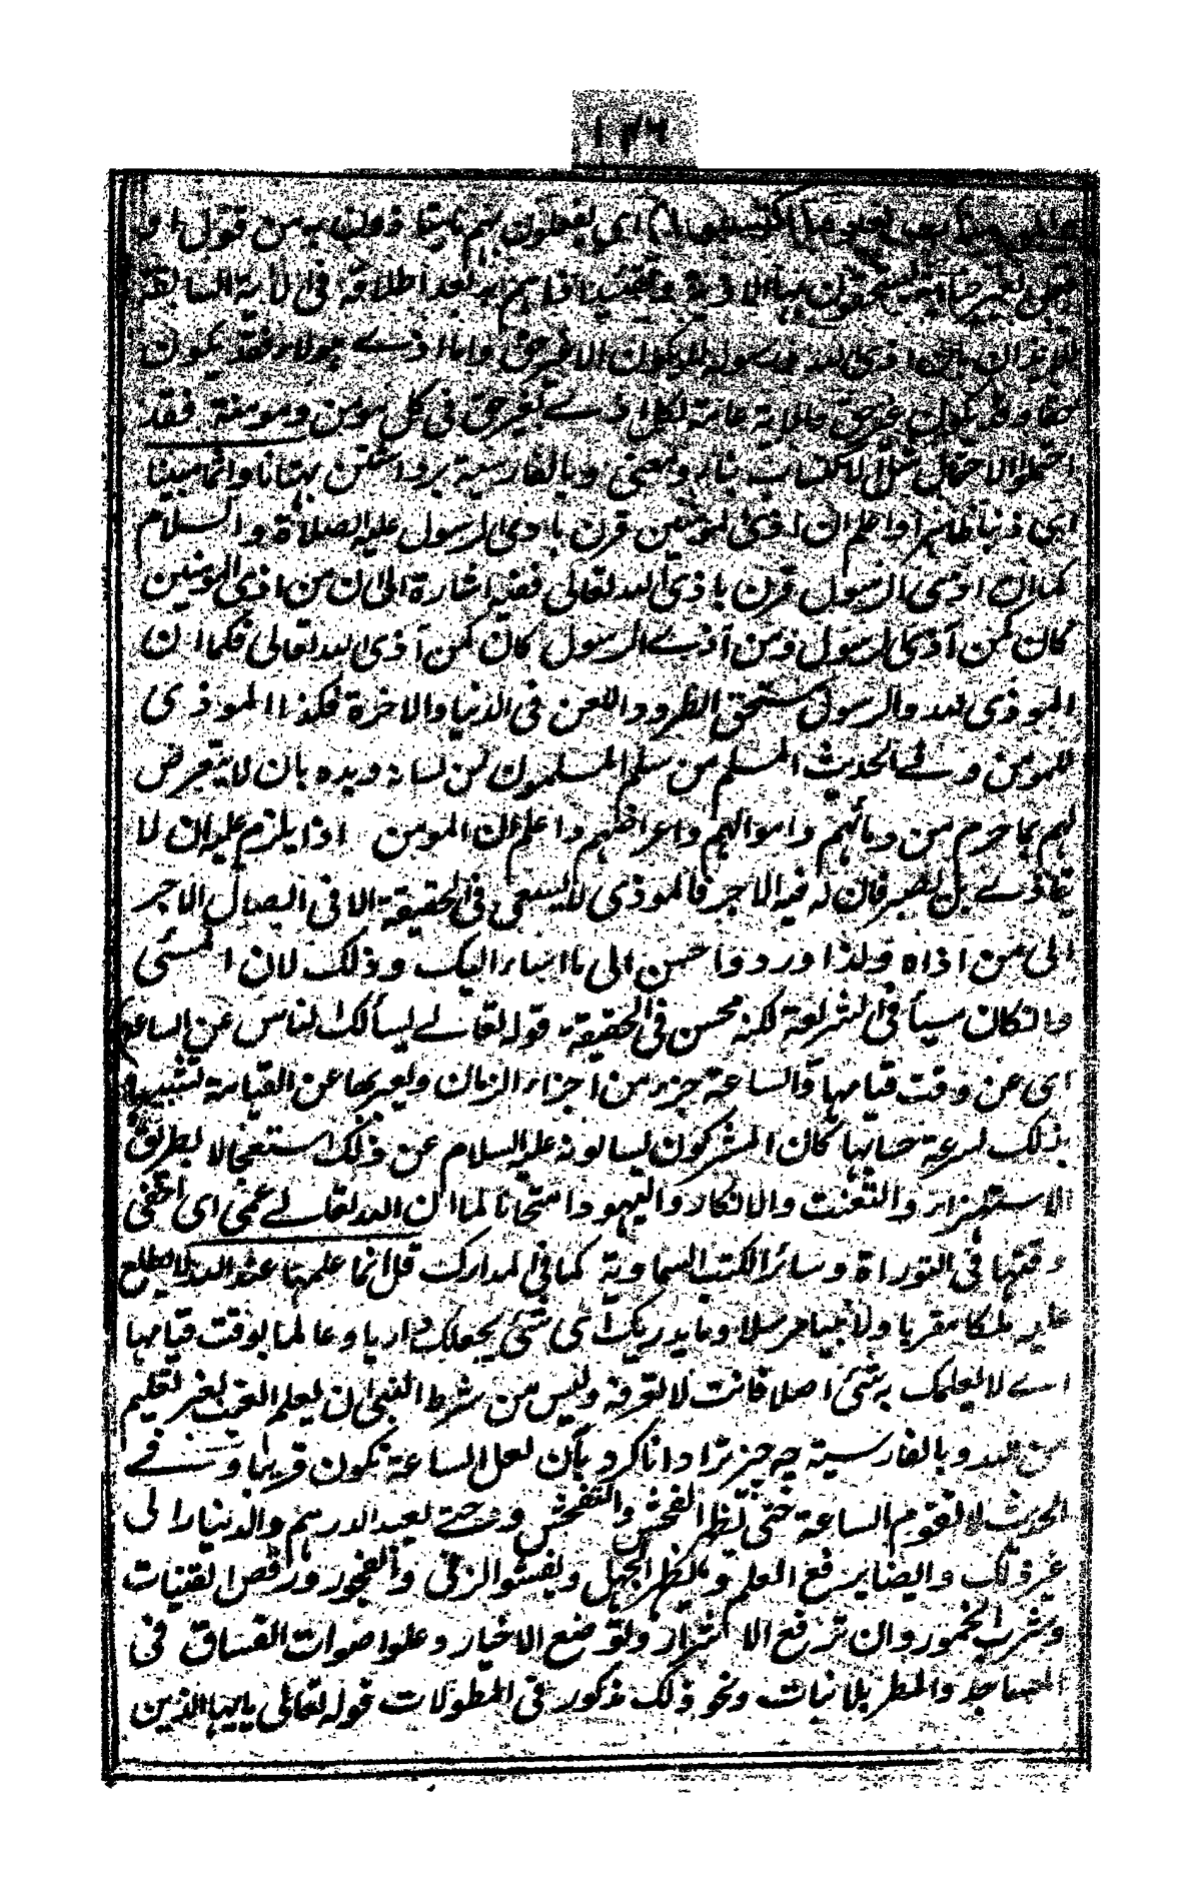 ١٢٦
بغير ما اكتسبوا اى يفعلون بهم ما يتاذون به من قول او
فعل بغير جناية يستحقون بها الاذية وتقييد اذاهم به بعد اطلاقه فى الآية السابقة
للايذان بان اذى الله ورسوله لا يكون الا غير حق واما اذے هولاء فقد يكون
حقا وقد يكون غير حق فالآية عامة لكل اذے بغير حق فى كل مومن ومومنة فقد
احتملوا الاحتمال مثل الاكتساب بناء ومعنى وبالفارسية برداشتن بهتانا واثما مبينا
اى ذنبا ظاهرا واعلم ان اذى المومنين قرن باذى الرسول عليه الصلاة والسلام
كما ان اذى الرسول قرن باذى الله تعالى ففيه اشارة الى ان من اذى المومنين
كان كمن آذى الرسول ومن آذے الرسول كان كمن آذى الله تعالى فكما ان
الموذى لله والرسول مستحق الطرد واللعن فى الدنيا والاخرة فكذا الموذى
للمومن وفى الحديث المسلم من سلم المسلمون من لسانه ويده بان لا يتعرض
لهم بما حرم من دمائهم واموالهم واعراضهم واعلم ان المومن اذا يلزم عليه ان لا
يتاذے بل يصبر فان له فيه الاجر فالموذى لا يسعى فى الحقيقة الا فى ايصال الاجر
الى من اذاه ولذا ورد واحسن الى ما اساء اليك وذلك لان المسئى
وان كان مسيأ فى الشريعة لكنه محسن فى الحقيقة قوله تعالے يسألك الناس عن الساعة
اى عن وقت قيامها والساعة جزء من اجزاء الزمان ويعبر بها عن القيامة تشبيها
بذلك لسرعة حسابها كان المشركون يسالونه عليه السلام عن ذلك استعجالا بطريق
الاستهزاء والتعنت والانكار واليهود امتحانا لما ان الله تعالے عمى اى اخفى
وقتها فى التوراة وسائر الكتب السماوية كما فى المدارك قل انما علمها عند الله لا يطلع
عليه ملكا مقربا ولا نبيا مرسلا وما يدريك اى شئ يجعلك داريا وعالما بوقت قيامها
اے لا يعلمك به شئ اصلا فانت لا تعرفه وليس من شرط النبى ان يعلم الغيب بغير تعليم
من الله وبالفارسية چه چيز ترا دانا كرد بآن لعل الساعة تكون قريبا وفے
الحديث لا تقوم الساعة حتى يظهر الفحش والتفحش وحتے يعبد الدرهم والدينار الى
غير ذلك وايضا يرفع العلم ويظهر الجهل ويفشو الزنى والفجور ورقص القينات
وشرب الخمور وان ترفع الاشرار وتوضع الاخيار وعلو اصوات الفساق فى
المساجد والمطر بلا نبات ونحو ذلك مذكور فى المطولات قوله تعالى يايها الذين